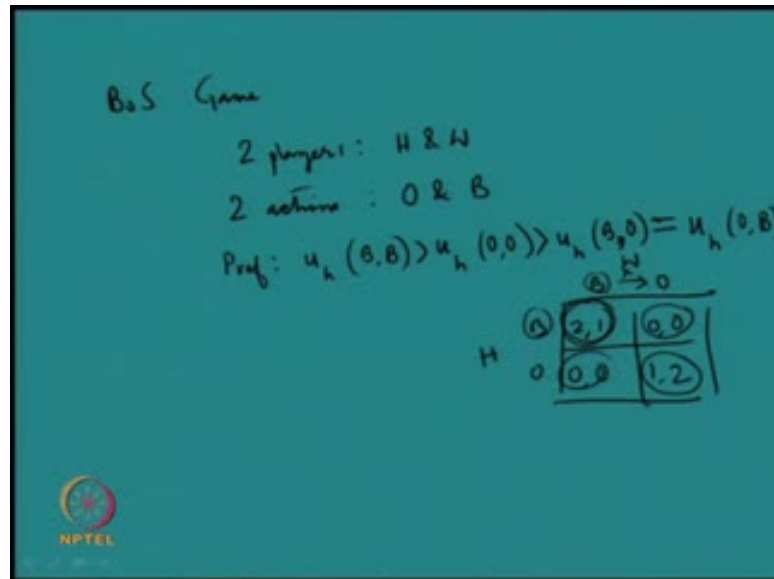 BoS Game
2 players: H & W
2 actions : O & B
Pref: u_h (B,B) > u_h (O,O) > u_h (B,O) = u_h (O,B)
W
B → O
H
B 2,1 0,0
O 0,0 1,2
NPTEL